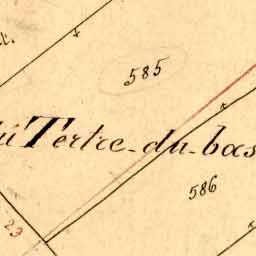 585
Tertre-du-bas
586
23